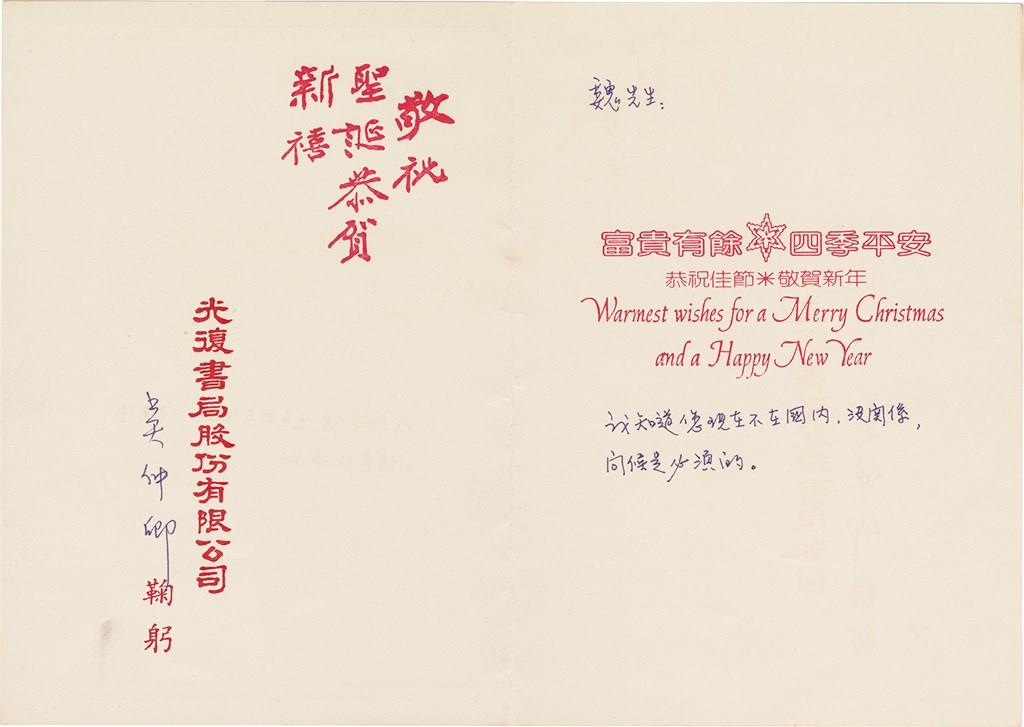 敬祝
聖誕恭賀
新禧
光復書局股份有限公司
吳仲卿 鞠躬
魏先生：
富貴有餘 四季平安
恭祝佳節 敬賀新年
Warmest wishes for a Merry Christmas
and a Happy New Year
我知道您現在不在國內，沒關係，
問候是必須的。